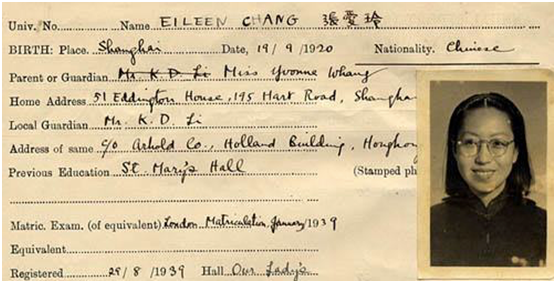 Univ. No. Name EILEEN CHANG 張愛玲
BIRTH: Place. Shanghai Date, 19/9/1920 Nationality. Chinese
Parent or Guardian Mr. K. D. Li Miss Yvonne Whang
Home Address 51 Eddington House, 195 Hart Road, Shangha
Local Guardian Mr. K. D. Li
Address of same c/o Arhold Co., Holland Building, Hongkong
Previous Education St. Mary's Hall (Stamped ph
Matric. Exam. (of equivalent) London Matriculation, January 1939
Equivalent
Registered 29/8/1939 Hall Our Lady's